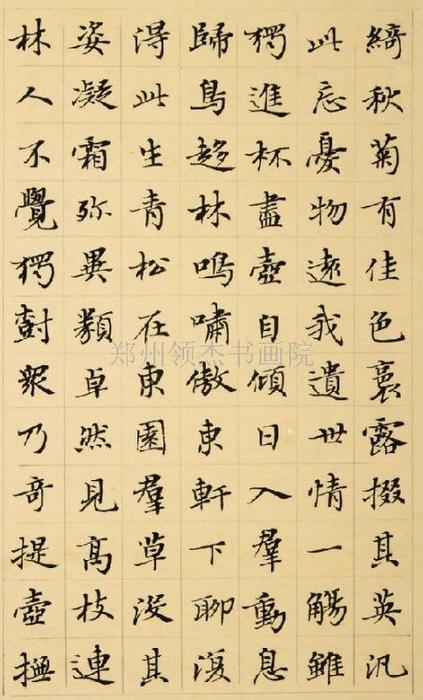 綺秋菊有佳色裛露掇其英汎
此忘憂物遠我遺世情一觴雖
獨進杯盡壺自傾日入羣動息
歸鳥趨林鳴嘯傲東軒下聊復
得此生青松在東園羣草沒其
姿凝霜弥異類卓然見高枝連
林人不覺獨尌眾乃奇提壺撫
郑州领杰书画院